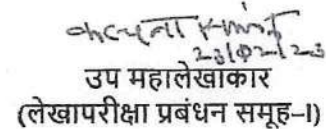 कल्पना
23/02/23
उप महालेखाकार
(लेखापरीक्षा प्रबंधन समूह–I)